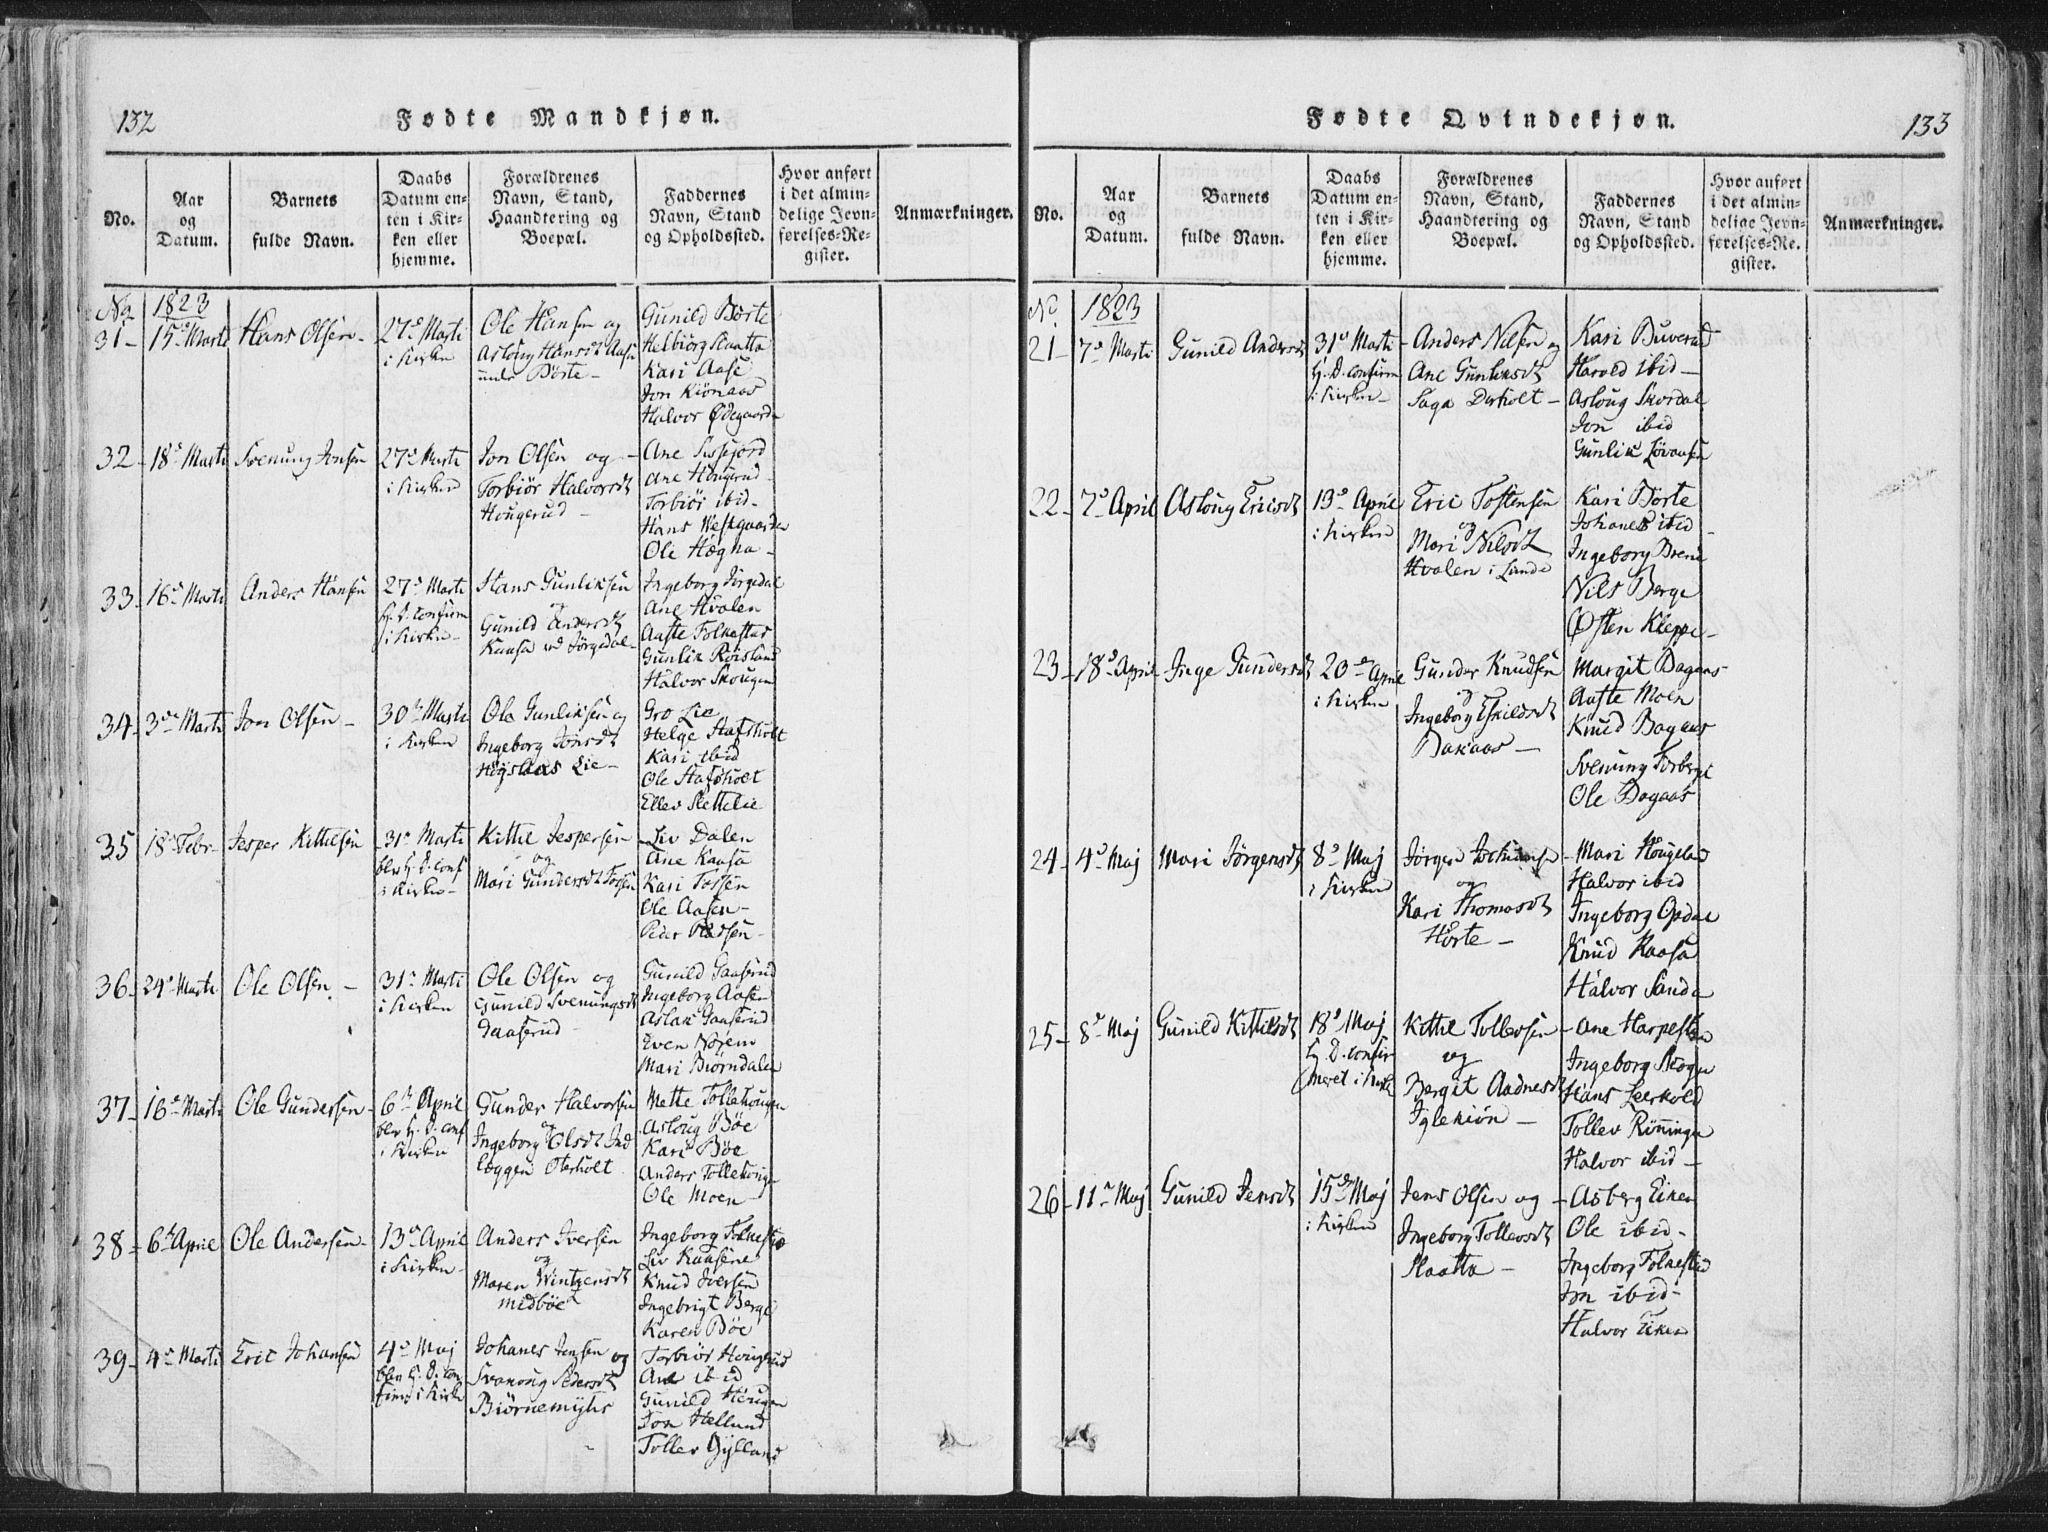 132
Fødte Mandkjøn.
No.
Aar og Datum.
Barnets fulde Navn.
Daabs Datum enten i Kirken eller hjemme.
Forældrenes Navn, Stand, Haandtering og Boepæl.
Faddernes Navn, Stand og Opholdssted.
Hvor anført i det almindelige Jevnførelses-Register.
Anmærkninger.
No 1823
31- 15de Marti Hans Olsen- 27de Marti i Kirken
Ole Hansen og
Aasloug Hansdt Aasen
under Børte-
Gunild Børte
Helbiørg Slaatta
Kari Aase
Jon Kiønaas
Halvor Ødegaarden
32- 18de Marti Svenung Jonsen 27de Marti i Kirken
Jon Olsen og -
Torbiør Halvorsdt
Hougerud -
Ane Sissejord
Ane Hougerud-
Torbiør ibid-
Hans Vestgaarden
Ole Hægna-
33- 16de Marti Anders Hansen 27de Marti
H. D. confirm
i Kirken-
Hans Gunliksen
og
Gunild Andersdt
Kaasa ved Jørgedal-
Ingeborg Jørgedal
Ane Hvalen
Aaste Folkestad
Gunlik Roisland
Halvor Skougen
34- 3die Marti Jon Olsen- 30te Marti
i Kirken
Ole Gunliksen og
Ingeborg Jonsdt
Lie-
Gro Lie
Helge Stafsholt
Kari ibid
Ole Stafsholt
Ellev Slettelie
35 18de Febr- Jesper Kittilsen 31te Marti
blev H. D. conf
i Kirken-
Kittil Jespersen
og
Mari Gundersdt Fossen
Liv Dalen
Ane Kaasa
Kari Fossen
Ole Aasen-
Peder
36- 24de Marti Ole Olsen- 31te Marti
i Kirken
Ole Olsen og
Gunild Svenungsdt
Gaaserud-
Gunild Gaaserud
Ingeborg Aasen
Aslak Gaaserud
Even Norem
Mari Biørndalen
37- 16de Marti Ole Gundersen- 6te April
blev H. D. conf
i Kirken
Gunder Halvorsen
og
Ingeborg Olsdt Ind
læggen Oterholt
Mette Tollehougen
Asloug Bøe
Kari Bøe
Anders Tollehougen
Ole Moen-
38- 6te April Ole Andersen- 13de April
i Kirken-
Anders Iversen
og
Maren Wintzensdt
midbøe
Ingeborg Folkestad
Liv Kaasene
Knud Iversen
Ingebrigt Berge
Karen Bøe
39- 4de Marti Eric Johansen 4de Maj
blev H. D. con
firm i Kirken
Johanes Jensen og
Svanoug Pedersdt
Biørnemyhr
Torbiør Hougerud
Ane ibid
Gunild Hougen
Jon Helland
Tollev Gylland
133
Fødte Qvindekjøn.
No.
Aar og Datum.
Barnets fulde Navn.
Daabs Datum enten i Kirken eller hjemme.
Forældrenes Navn, Stand, Haandtering og Boepæl.
Faddernes Navn, Stand og Opholdssted.
Hvor anført i det almindelige Jevnførelses-Register.
Anmærkninger.
No 1823
21- 7de Marti Gunild Andersdt 31te Marti
H. D. confirm
i Kirken-
Anders Nilsen og
Ane Gunliksdt
Saga Oterholt-
Kari Buverud
Harold ibid-
Asloug Skordal
Jon ibid
Gunlik Løvaasen
22- 7de April Asloug Ericsdt 13de April
i Kirken
Eric Tostensen
og
Mari Nilsdt
Hvalen i Lunde
Kari Børte
Johanes ibid-
Ingeborg Brene
Nils Berge
Østen Kleppe-
23- 18de April Inge Gundersdt 20de April
i Kirken
Gunder Knudsen
og
Ingeborg Eskildsdt
Dakaas-
Margit Dagaas
Aaste Moen
Knud Dagaas
Svenung Torberg
Ole Dagaas
24- 4de Maj Mari Jørgensdt 8de Maj
i Kirken
Jørgen Jochumsen
og
Kari Thomasdt
Hørte-
Mari Hougelad
Halvor ibid
Ingeborg Opdal
Knud Kaasa
Halvor Sanda
25- 8de Maj Gunild Kittilsdt 18de Maj
H. D. confir
meret i Kirken
Kittil Tollevsen
og
Bergit Aadnesdt
Iglekiøn-
Ane Harpesteen
Ingeborg Skogen
Hans Leerkold
Tollev Rønningen
Halvor ibid-
26- 11te Maj Gunild Jensdt 15de Maj
i Kirken
Jens Olsen og
Ingeborg Tollevsdt
Slaatta-
Asberg Eiken
Ole ibid-
Ingeborg Folkestad
Jon ibid-
Halvor Eiken